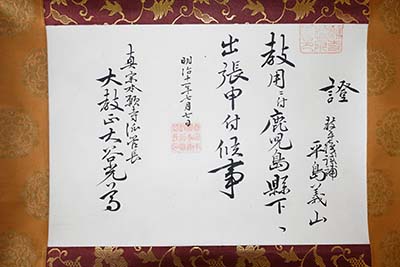 證
平島義山
教用ニ付鹿児島縣下ヘ
出張申付候事
明治十一年七月七日
真宗本願寺派管長
大教正大谷光尊